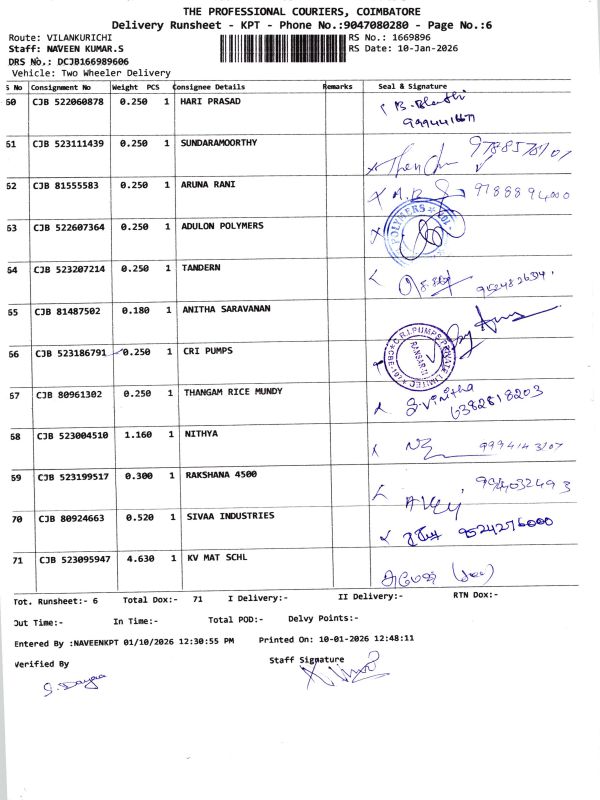 THE PROFESSIONAL COURIERS, COIMBATORE
Delivery Runsheet - KPT - Phone No.:9047080280 - Page No.:6
Route: VILANKURICHI RS No.: 1669896
Staff: NAVEEN KUMAR.S RS Date: 10-Jan-2026
DRS No.: DCJB166989606
Vehicle: Two Wheeler Delivery
S No Consignment No Weight PCS Consignee Details Remarks Seal & Signature
60 CJB 522060878 0.250 1 HARI PRASAD
61 CJB 523111439 0.250 1 SUNDARAMOORTHY
62 CJB 81555583 0.250 1 ARUNA RANI
63 CJB 522607364 0.250 1 ADULON POLYMERS POLYMERS
64 CJB 523207214 0.250 1 TANDERN
65 CJB 81487502 0.180 1 ANITHA SARAVANAN
66 CJB 523186791 0.250 1 CRI PUMPS C.R.I.PUMPS PRIVATE LIMITED
67 CJB 80961302 0.250 1 THANGAM RICE MUNDY S.Vinitha
6382818203
68 CJB 523004510 1.160 1 NITHYA
69 CJB 523199517 0.300 1 RAKSHANA 4500
70 CJB 80924663 0.520 1 SIVAA INDUSTRIES 9524276000
71 CJB 523095947 4.630 1 KV MAT SCHL
Tot. Runsheet:- 6 Total Dox:- 71 I Delivery:- II Delivery:- RTN Dox:-
Out Time:- In Time:- Total POD:- Delvy Points:-
Entered By :NAVEENKPT 01/10/2026 12:30:55 PM Printed On: 10-01-2026 12:48:11
Verified By Staff Signature